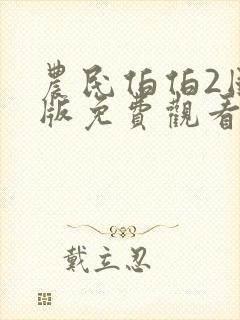 農民伯伯2
版免費觀看
戴立忍